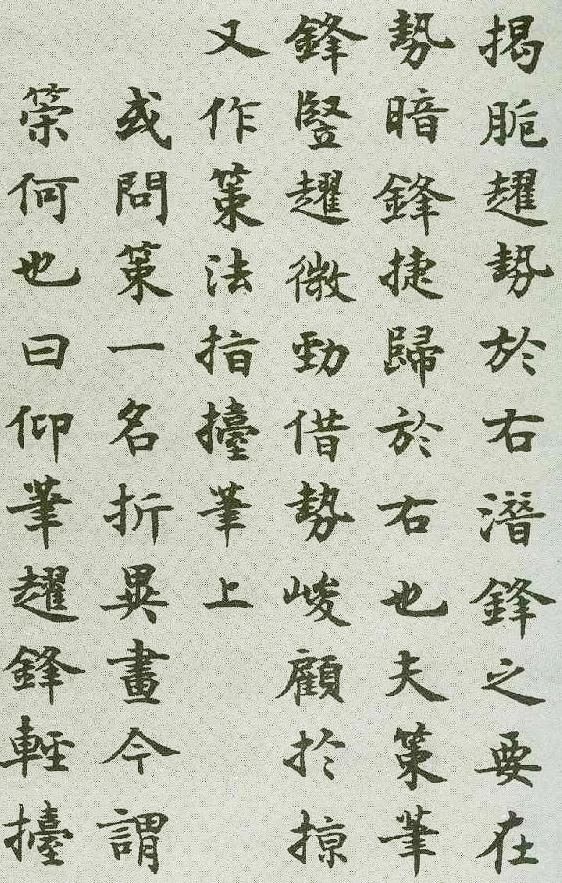 揭腕趯勢於右潛鋒之要在
勢暗鋒捷歸於右也夫策筆
鋒豎趯微勁借勢峻顧於掠
又作策法指擡筆上
或問策一名折異畫今謂
策何也曰仰筆趯鋒輕擡